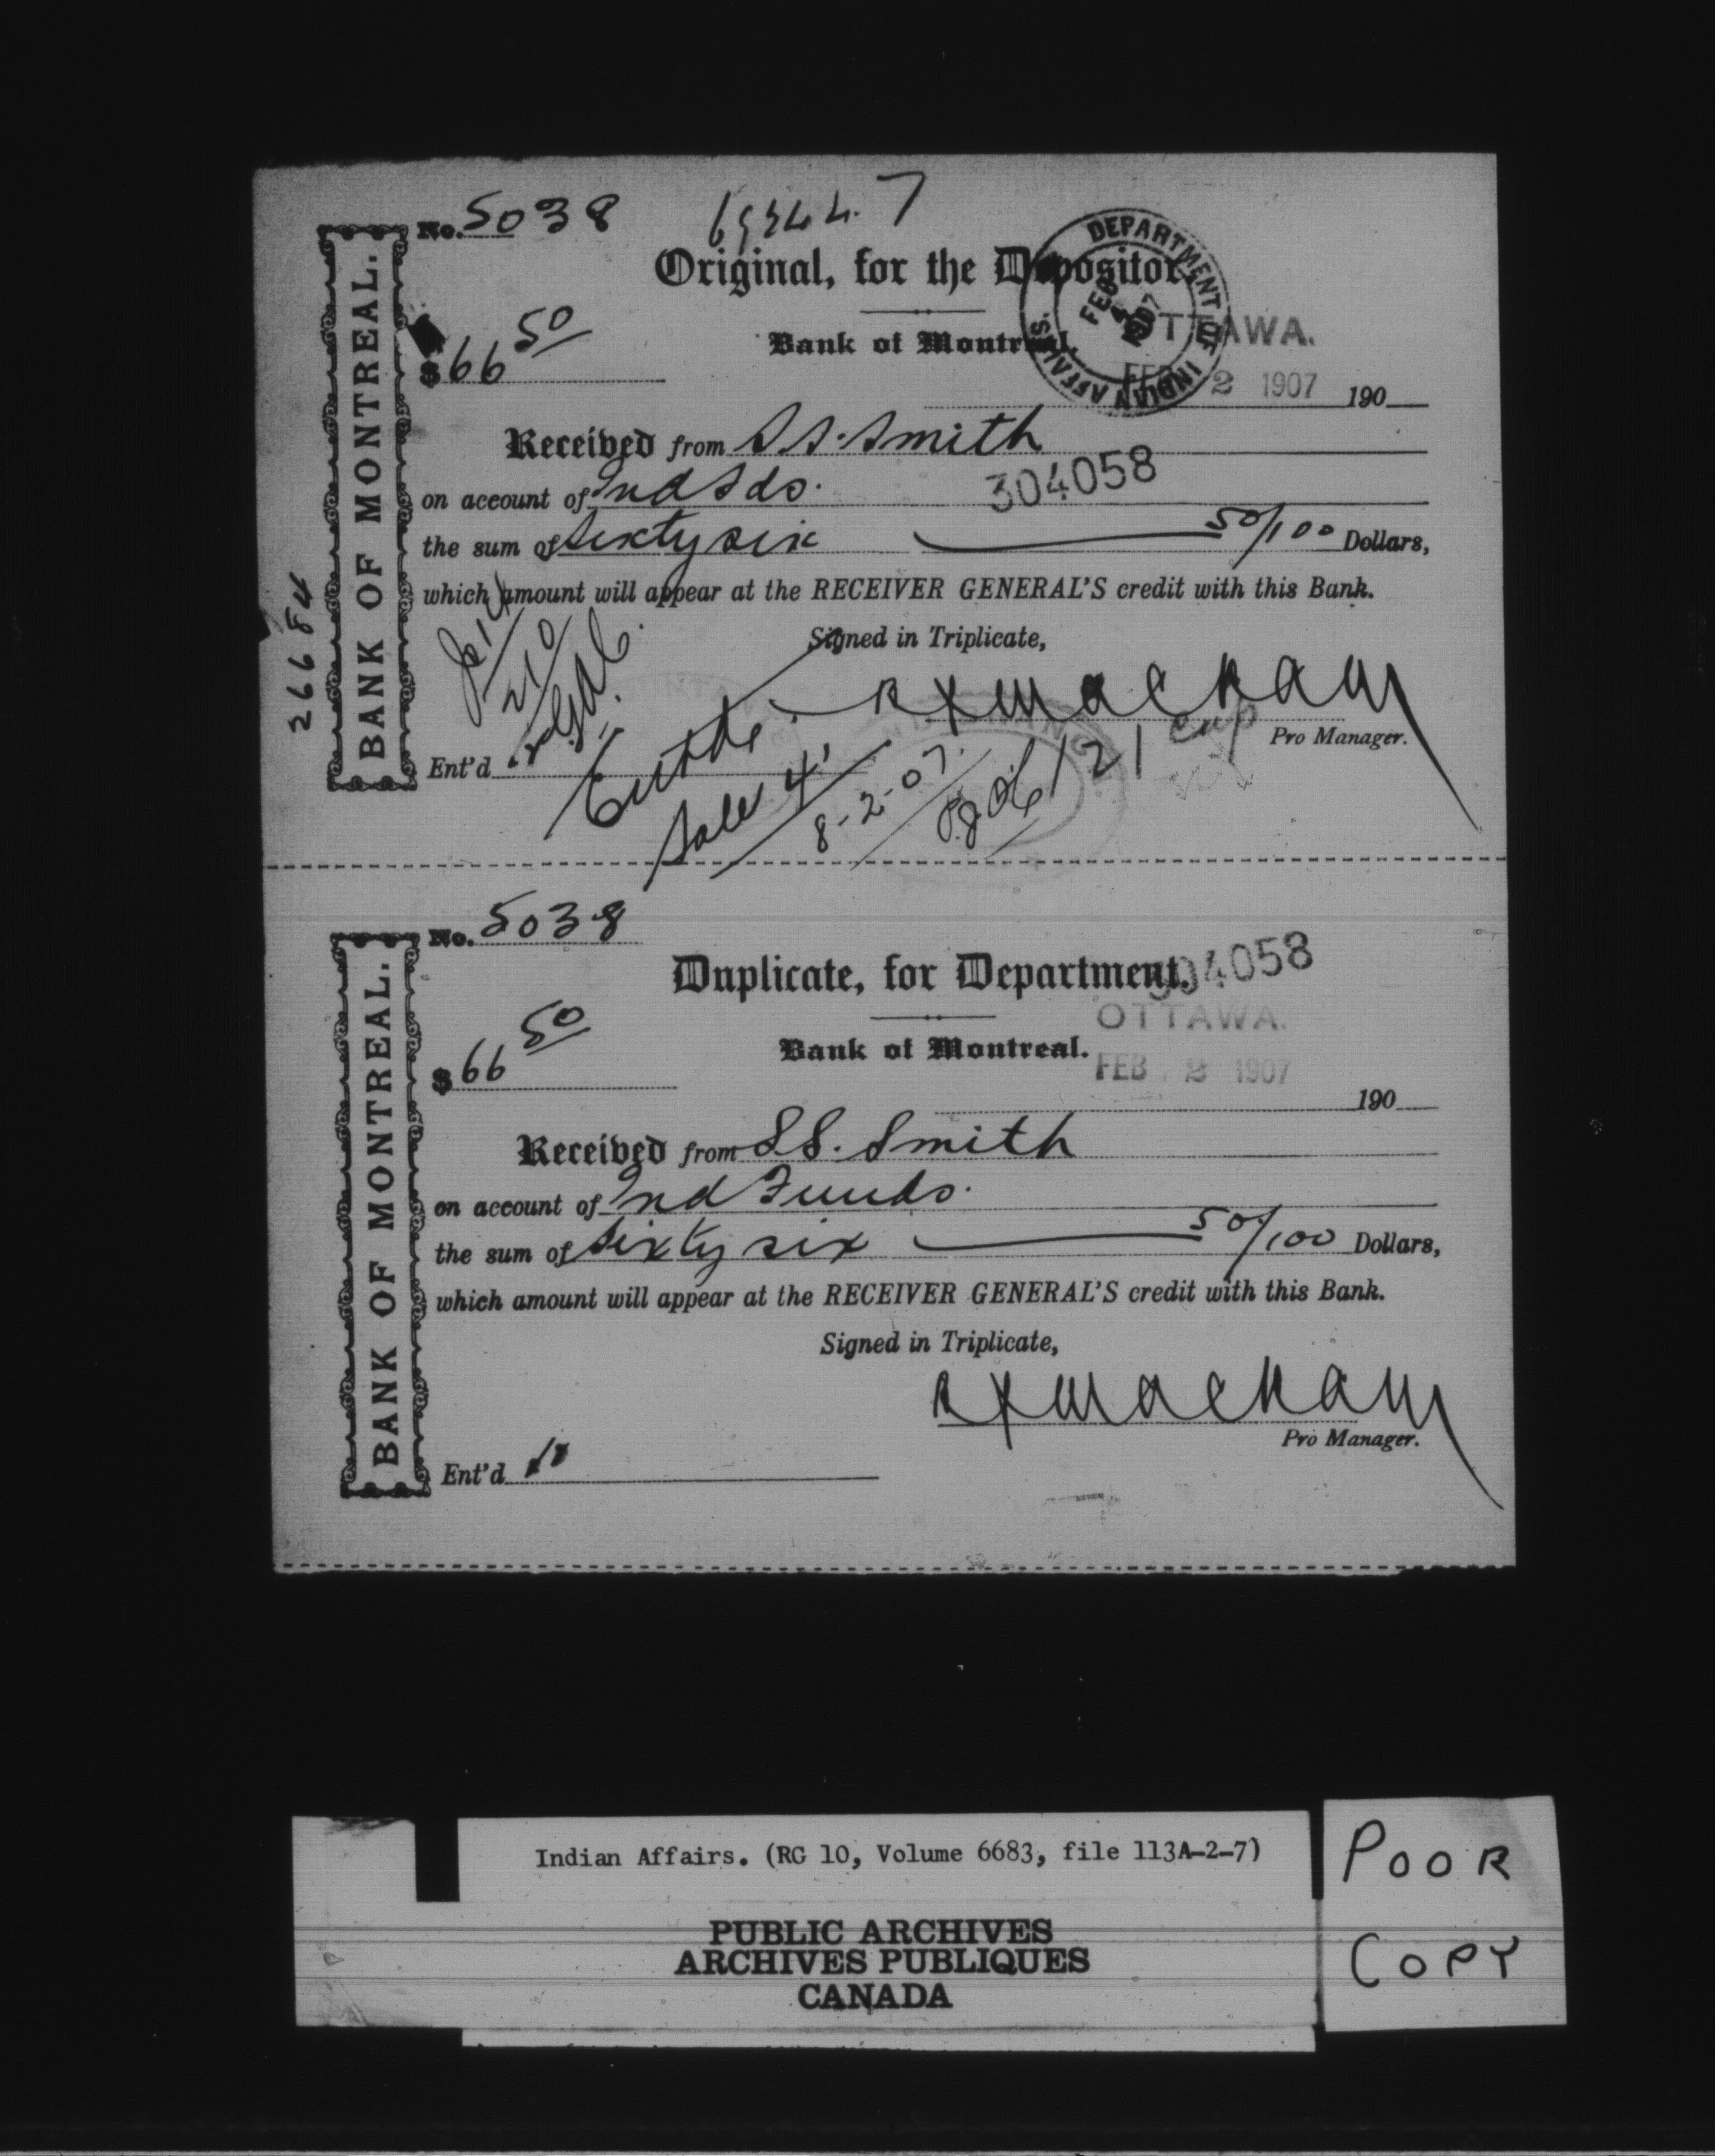 No. 5038
Original, for the Depositor.
DEPARTMENT OF INDIAN AFFAIRS.
FEB 4 1907
$66 50
Bank of Montreal.
OTTAWA.
FEB 2 1907 190
Received from S S. Smith
on account of Ind Fds.
304058
the sum of Sixty six 50/100 Dollars,
which amount will appear at the RECEIVER GENERAL'S credit with this Bank.
Signed in Triplicate,
Pro Manager.
Ent'd
Sale 4
8-2-07.
121
BANK OF MONTREAL.
26684
No. 5038
Duplicate, for Department.
304058
OTTAWA.
$66 50
Bank of Montreal.
FEB 2 1907
190
Received from S S. Smith
on account of Ind Funds.
the sum of Sixty six 50/100 Dollars,
which amount will appear at the RECEIVER GENERAL'S credit with this Bank.
Signed in Triplicate,
Pro Manager.
Ent'd
BANK OF MONTREAL.
Indian Affairs. (RG 10, Volume 6683, file 113A-2-7)
PUBLIC ARCHIVES
ARCHIVES PUBLIQUES
CANADA
POOR
COPY